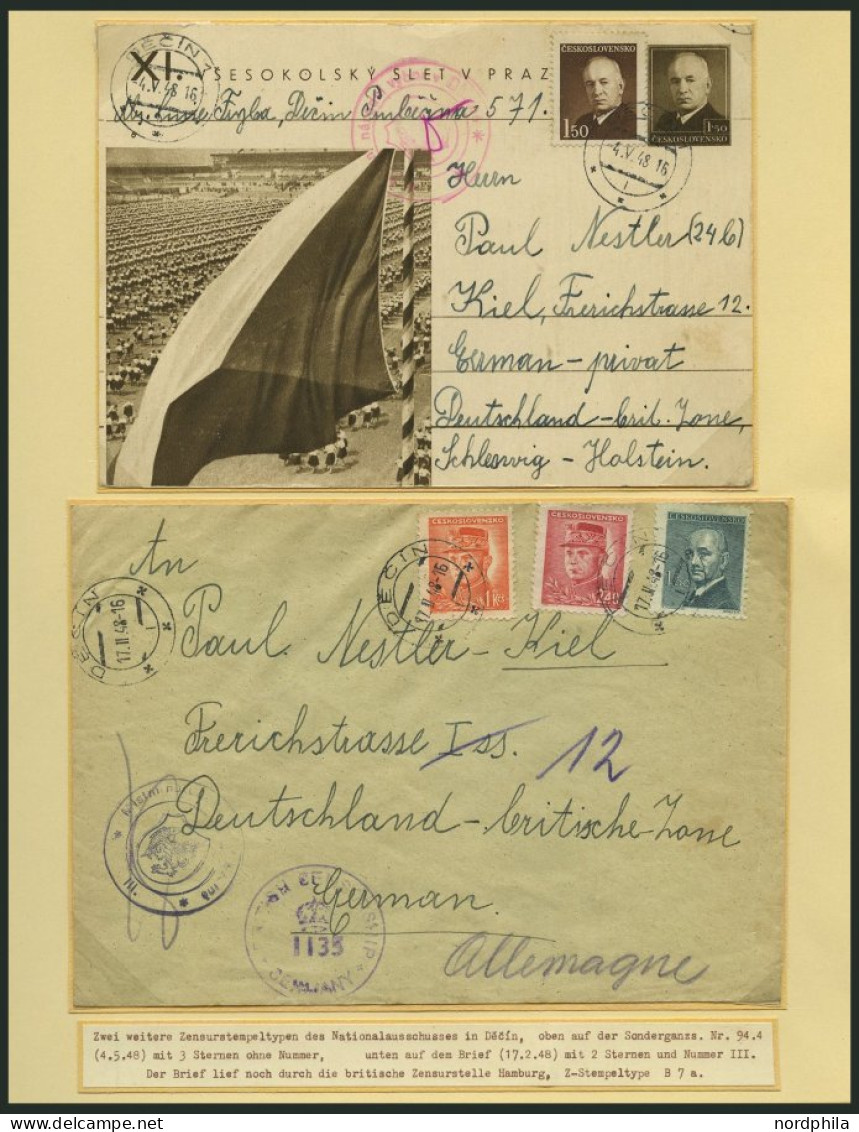 XI. VŠESOKOLSKÝ SLET V PRAZ
DĚČÍN 1
4.V.48 16
Děčín
571.
ČESKOSLOVENSKO
1.50
ČESKOSLOVENSKO
1.50
4.V.48 16
Herrn
Paul Nestler (24b)
Kiel, Frerichstrasse 12.
German - privat
Deutschland - brit. Zone,
Schleswig - Holstein.
ČESKOSLOVENSKO
1 Kčs
ČESKOSLOVENSKO
2.40
ČESKOSLOVENSKO
DĚČÍN 1
17.II.48-16
DĚČÍN
17.II.48-16
17.II.48-16
An
Paul Nestler - Kiel
Frerichstrasse 12
Deutschland - britische - Zone
German
Allemagne
Místní
III.
CENSORSHIP
1135
GERMANY
Zwei weitere Zensurstempeltypen des Nationalausschusses in Děčín, oben auf der Sonderganzs. Nr. 94.4
(4.5.48) mit 3 Sternen ohne Nummer, unten auf dem Brief (17.2.48) mit 2 Sternen und Nummer III.
Der Brief lief noch durch die britische Zensurstelle Hamburg, Z-Stempeltype B 7 a.
nordphila